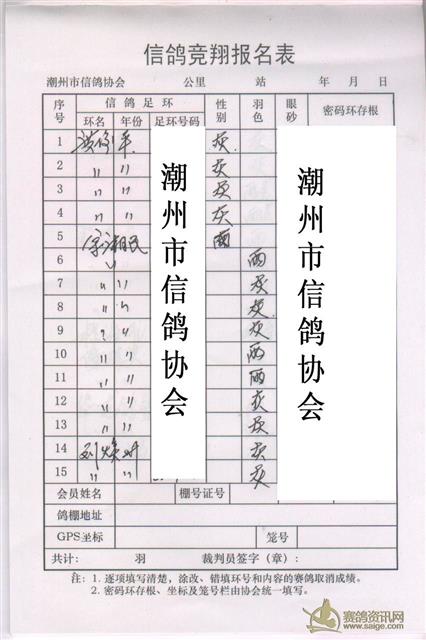 信鸽竞翔报名表
潮州市信鸽协会 公里 站 年 月 日
序号 信鸽足环 性别 羽色 眼砂 密码环存根
环名 年份 足环号码
1 灰
2 〃 〃 灰
3 〃 〃 灰
4 〃 〃 灰
5 雨
6 雨
7 〃 〃 灰
8 〃 〃 灰
9 〃 〃 灰
10 〃 〃 雨
11 〃 〃 雨
12 〃 〃 灰
13 〃 〃 灰
14 灰
15 〃 〃 灰
潮州市信鸽协会
潮州市信鸽协会
会员姓名 棚号证号
鸽棚地址
GPS坐标 笼号
共计: 羽 裁判员签字(章):
注: 1. 逐项填写清楚,涂改、错填环号和内容的赛鸽取消成绩。
2. 密码环存根、坐标及笼号栏由协会统一填写。
赛鸽资讯网
www.saige.com